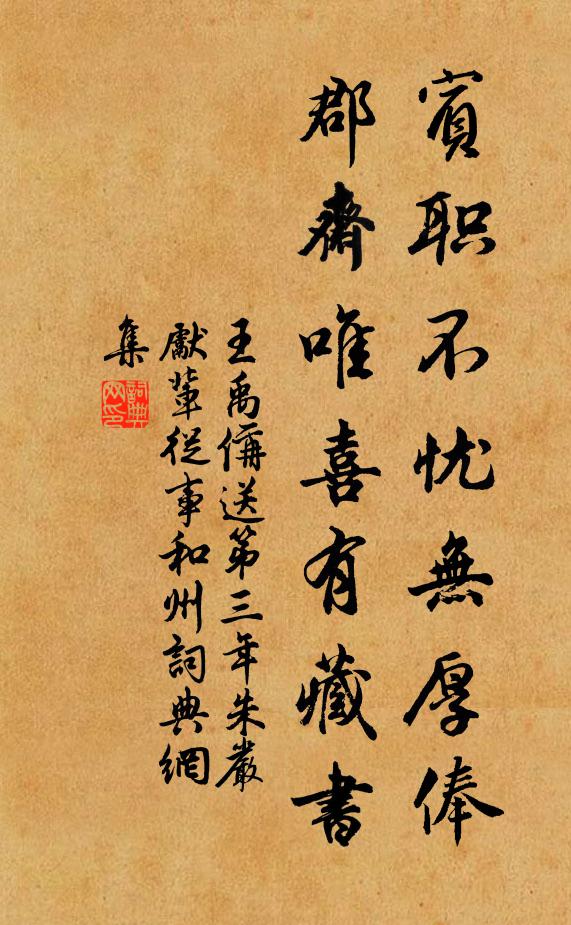 賓职不忧無厚俸
郡齋唯喜有藏書
王禹偁送第三年朱嚴
獻輩從事和州詞典網
集
詞典
网印